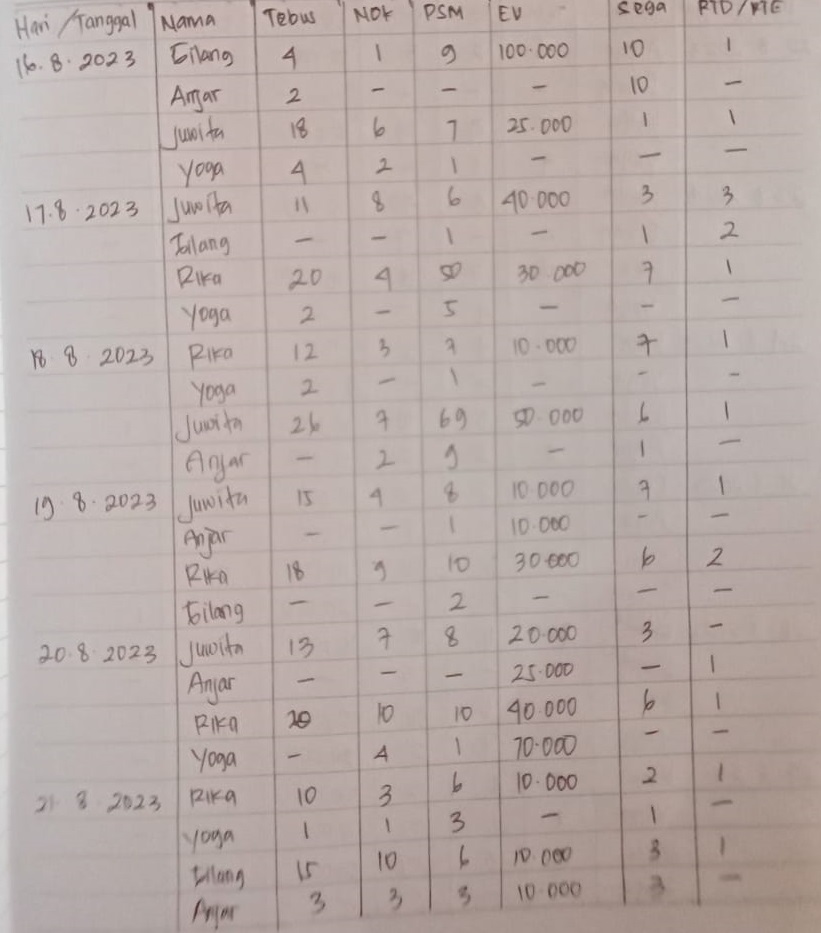 Hari / Tanggal Nama Tebus NOK PSM EV Sega RTD / RTE
16. 8. 2023 Gilang 4 1 9 100.000 10 1
Anjar 2 - - - 10 -
Juwita 18 6 7 25.000 1 1
Yoga 4 2 1 - - -
17. 8. 2023 Juwita 11 8 6 40.000 3 3
Gilang - - 1 - 1 2
Rika 20 4 50 30.000 7 1
Yoga 2 - 5 - - -
18. 8. 2023 Rika 12 3 7 10.000 7 1
Yoga 2 - 1 - - -
Juwita 26 7 69 50.000 6 1
Anjar - 2 9 - 1 -
19. 8. 2023 Juwita 15 4 8 10.000 7 1
Anjar - - 1 10.000 - -
Rika 18 9 10 30.000 6 2
Gilang - - 2 - - -
20. 8. 2023 Juwita 13 7 8 20.000 3 -
Anjar - - - 25.000 - 1
Rika 20 10 10 40.000 6 1
Yoga - 4 1 70.000 - -
21. 8. 2023 Rika 10 3 6 10.000 2 1
Yoga 1 1 3 - 1 -
Gilang 15 10 6 10.000 3 1
Anjar 3 3 3 10.000 3 -